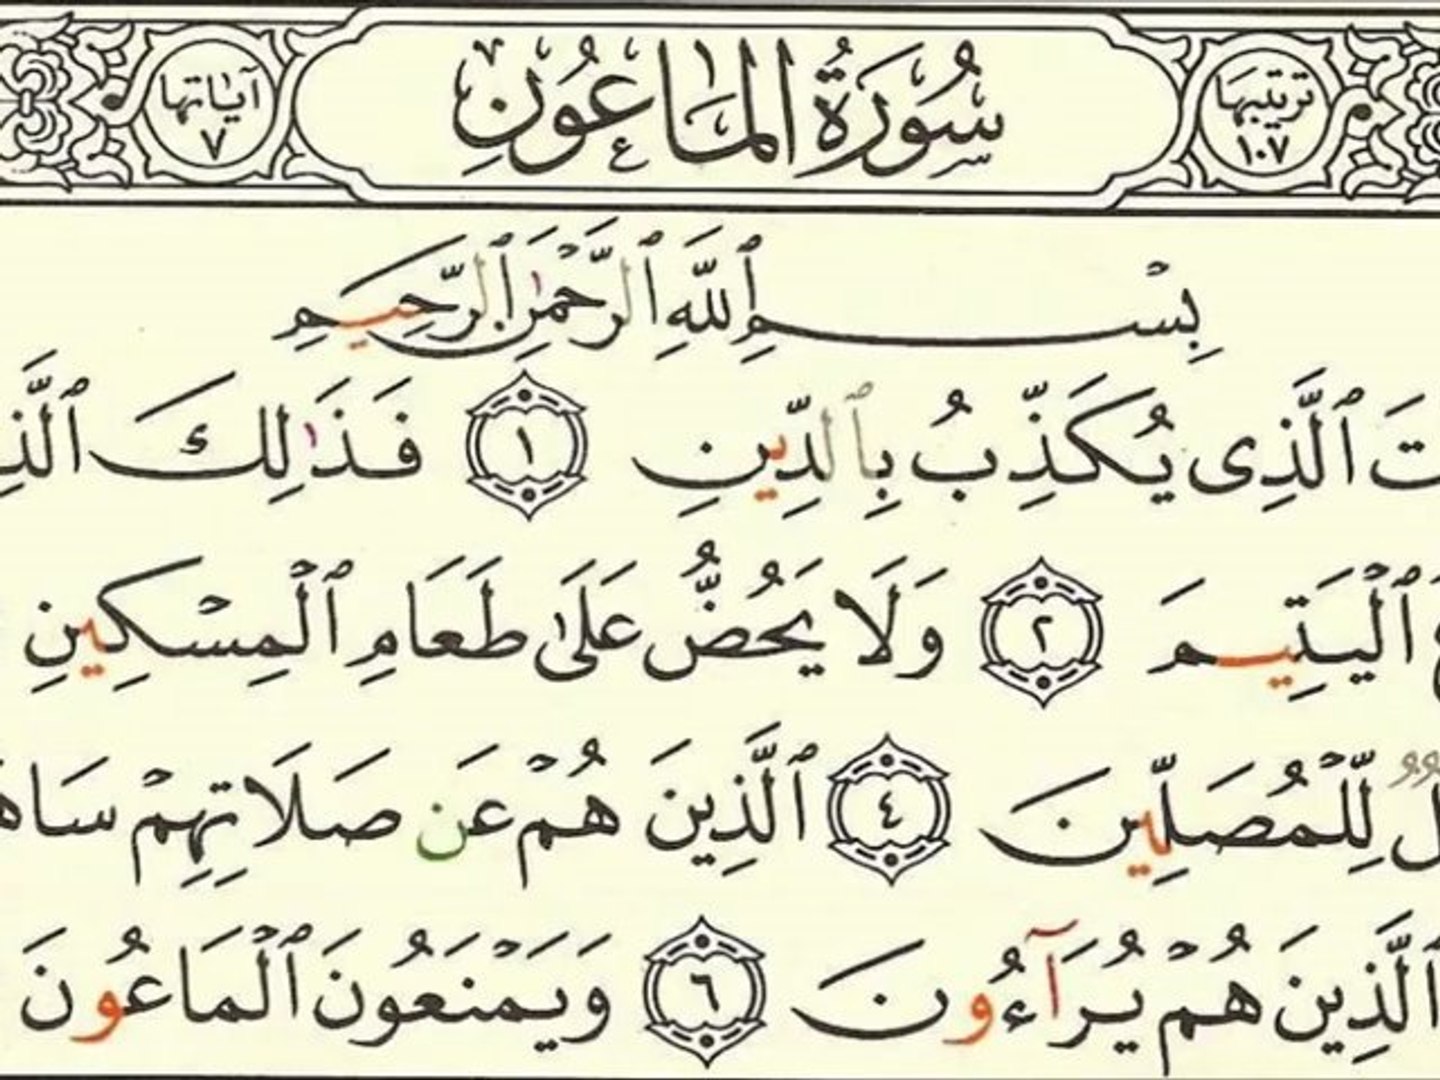 ترتيبها ١٠٧
سُورَةُ المَاعُونِ
آياتها ٧
بِسْمِ ٱللَّهِ ٱلرَّحْمَٰنِ ٱلرَّحِيمِ
ٱلَّذِى يُكَذِّبُ بِٱلدِّينِ ١ فَذَٰلِكَ
ٱلْيَتِيمَ ٢ وَلَا يَحُضُّ عَلَىٰ طَعَامِ ٱلْمِسْكِينِ
لِّلْمُصَلِّينَ ٤ ٱلَّذِينَ هُمْ عَن صَلَاتِهِمْ
ٱلَّذِينَ هُمْ يُرَآءُونَ ٦ وَيَمْنَعُونَ ٱلْمَاعُونَ